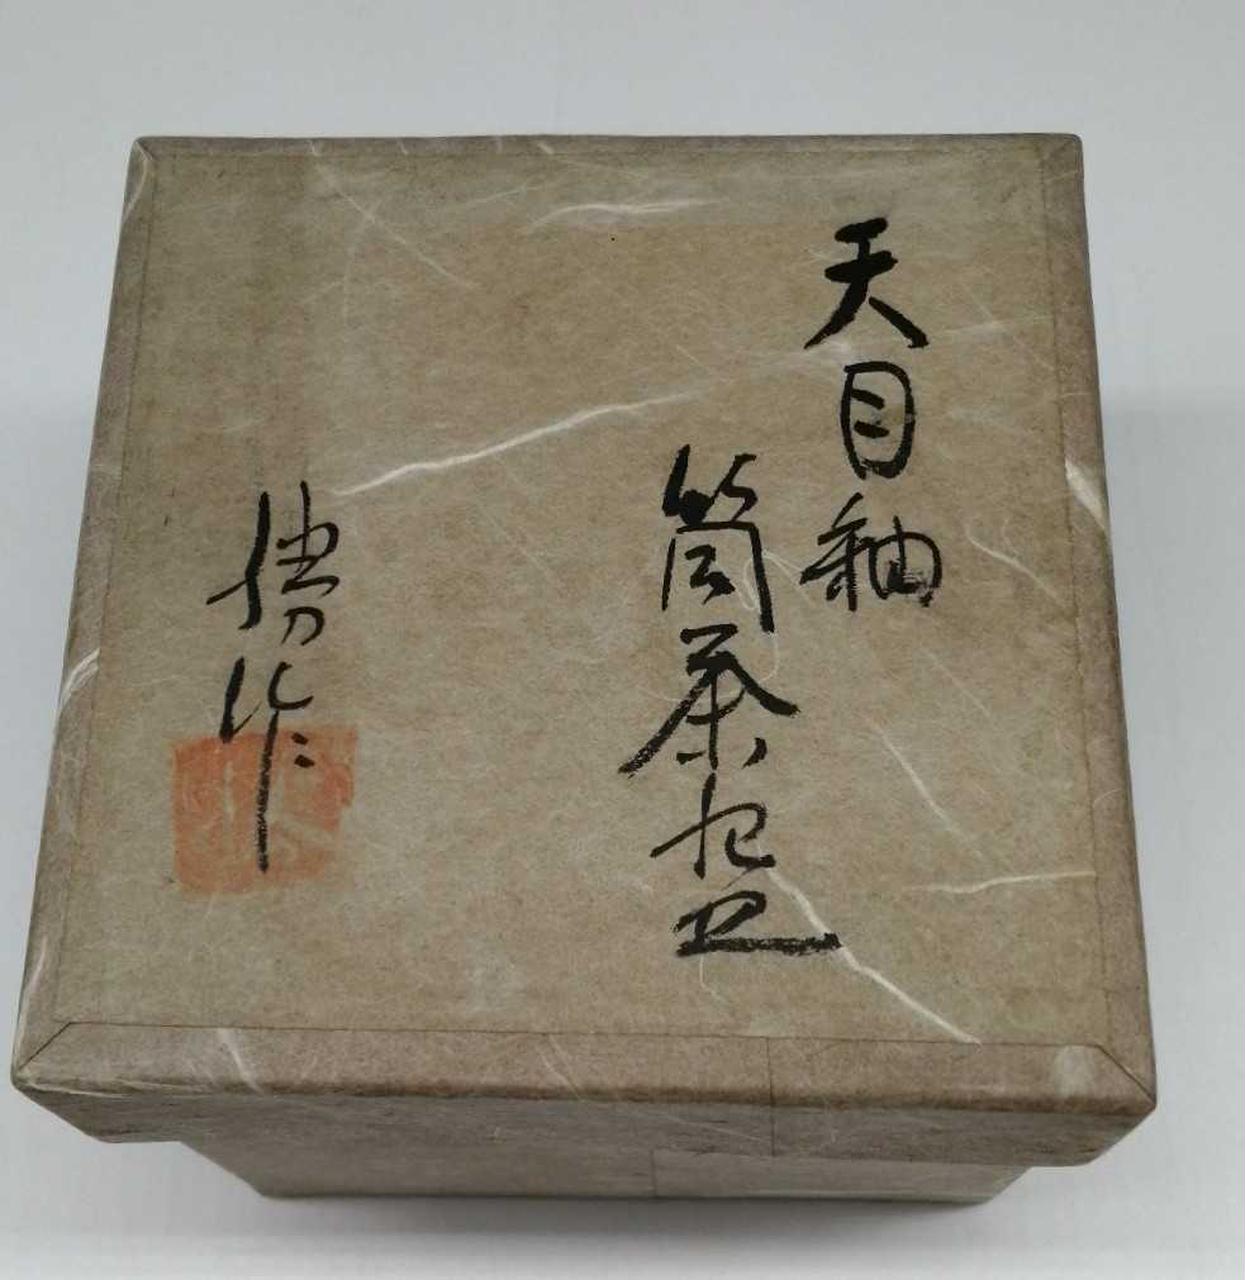 天目釉
筒茶盌
作